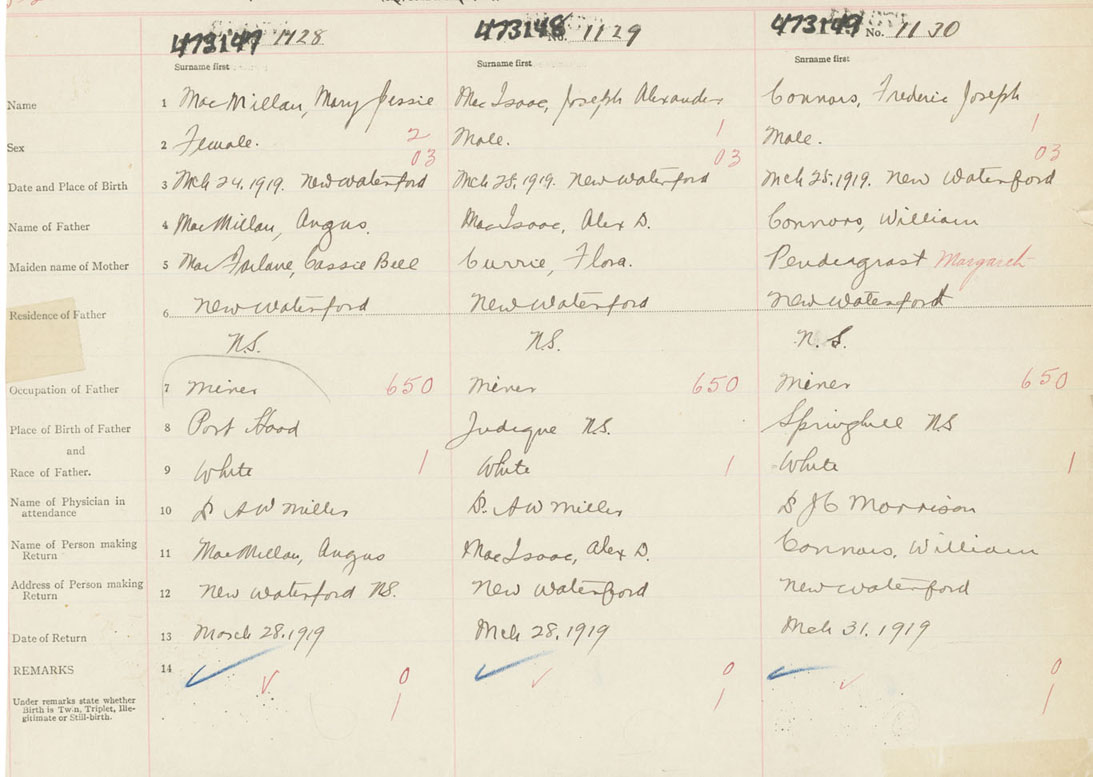 473147 1128
473148 No. 1129
473149 No. 1130
Surname first
Surname first
Surname first
Name 1 MacMillan, Mary Jessie
MacIsaac, Joseph Alexander
Connors, Frederic Joseph
Sex 2 Female. 2
Male. 1
Male. 1
03
03
03
Date and Place of Birth 3 Mch 24.1919. New Waterford
Mch 25.1919. New Waterford
Mch 25.1919. New Waterford
Name of Father 4 MacMillan, Angus.
MacIsaac, Alex D.
Connors, William
Maiden name of Mother 5 MacFarlane, Cassie Bell
Currie, Flora.
Pendergrast Margaret
Residence of Father 6 New Waterford
New Waterford
New Waterford
N.S.
N.S.
N.S.
Occupation of Father 7 Miner 650
Miner 650
Miner 650
Place of Birth of Father 8 Port Hood
Judique N.S.
Springhill NS
and
Race of Father. 9 White 1
White 1
White 1
Name of Physician in
attendance 10 Dr AW Miller
Dr. AW Miller
Dr JC Morrison
Name of Person making
Return 11 MacMillan, Angus
MacIsaac, Alex D.
Connors, William
Address of Person making
Return 12 New Waterford N.S.
New Waterford
New Waterford
Date of Return 13 March 28.1919
Mch 28.1919
Mch 31.1919
REMARKS 14
0
0
0
Under remarks state whether
Birth is Twin, Triplet, Ille-
gitimate or Still-birth.
1
1
1